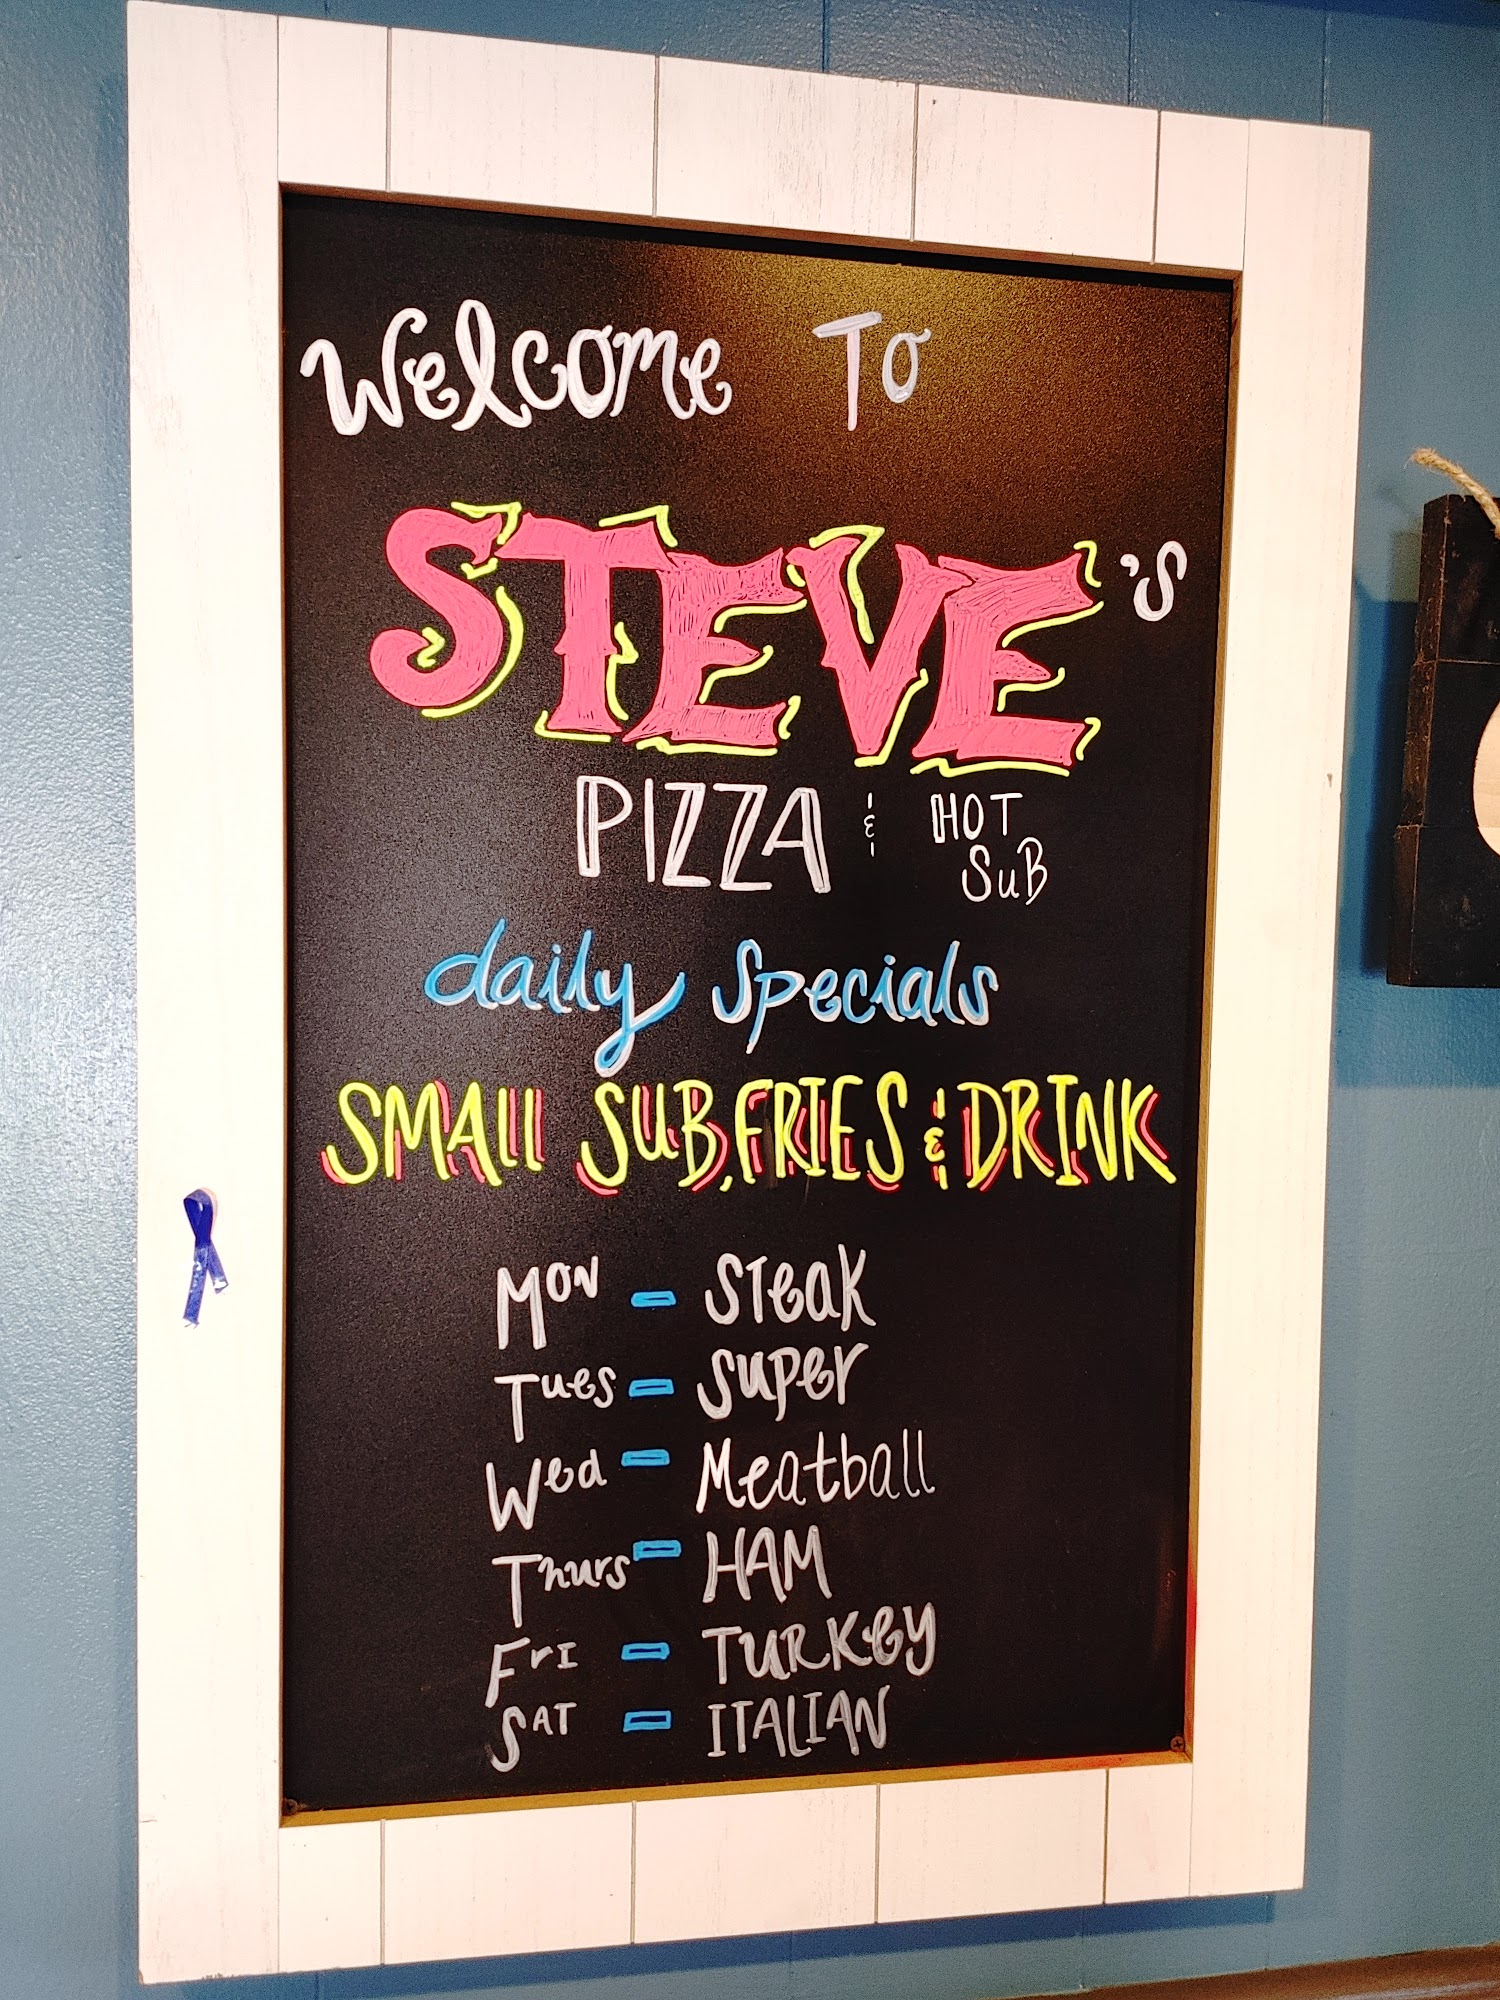 Welcome To
STEVE's
PIZZA & HOT SuB
daily specials
SMAll SUB, FRIES & DRINK
MON - STeaK
Tues - super
Wed - Meatball
Thurs - HAM
FrI - TURKey
SAT - ITALIAN